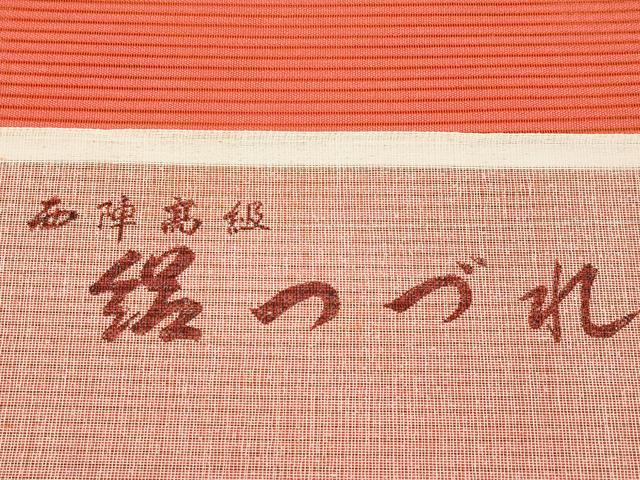 西陣高級
絽つづれ